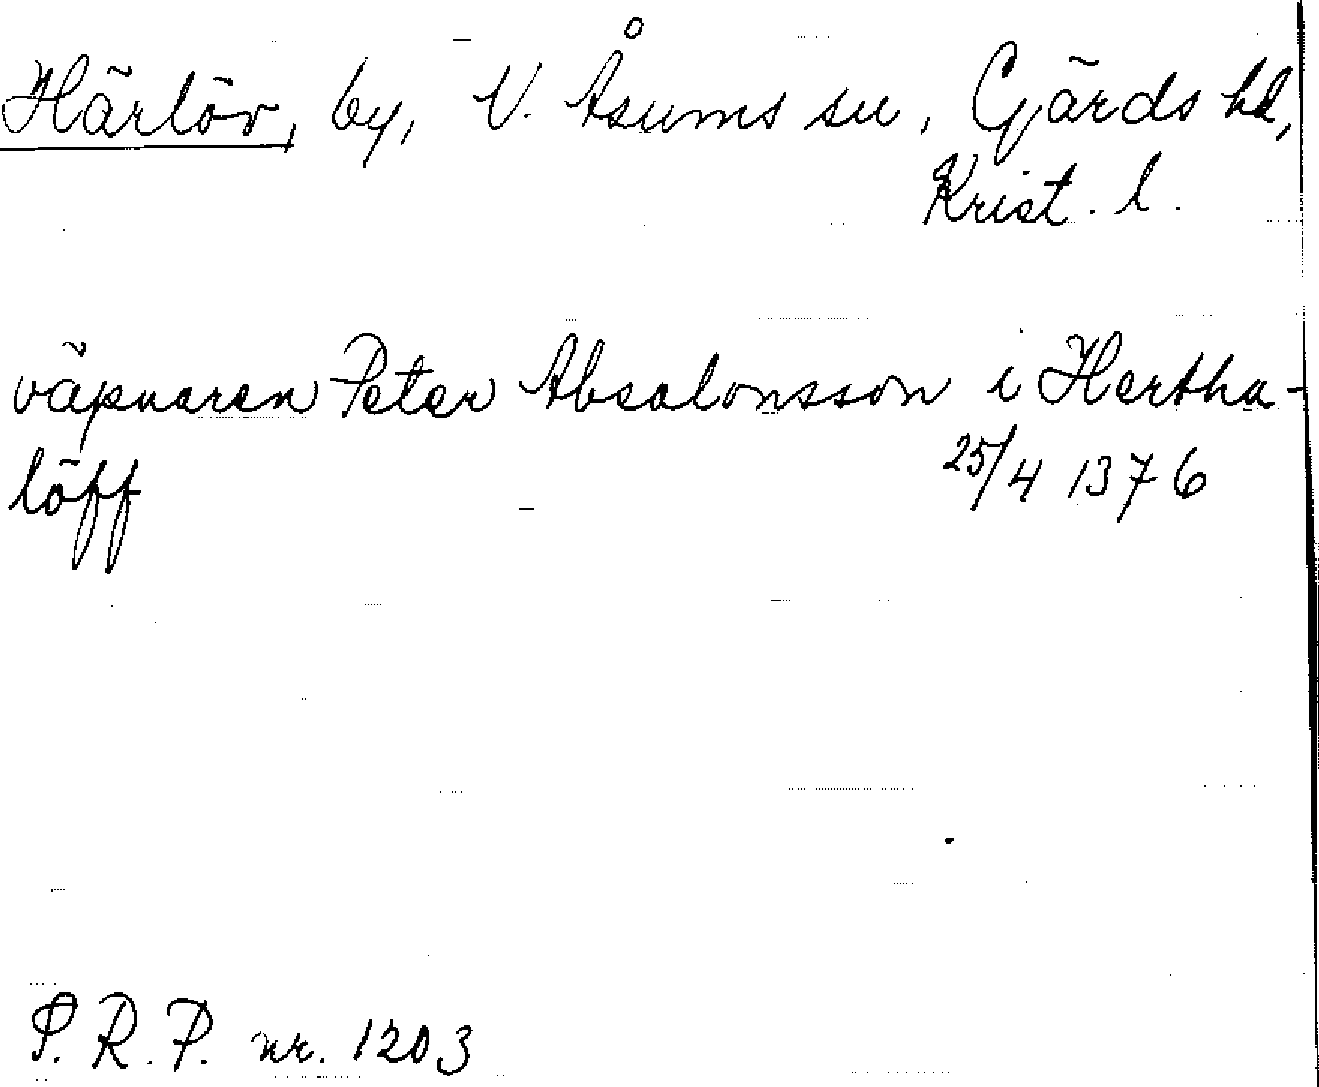 Härlöv, by, V. Åsums sn, Gärds hd,
Krist. l.
väpnaren Peter Absalonsson i Hertha-
löff
25/4 1376
S.R.P. nr. 1203